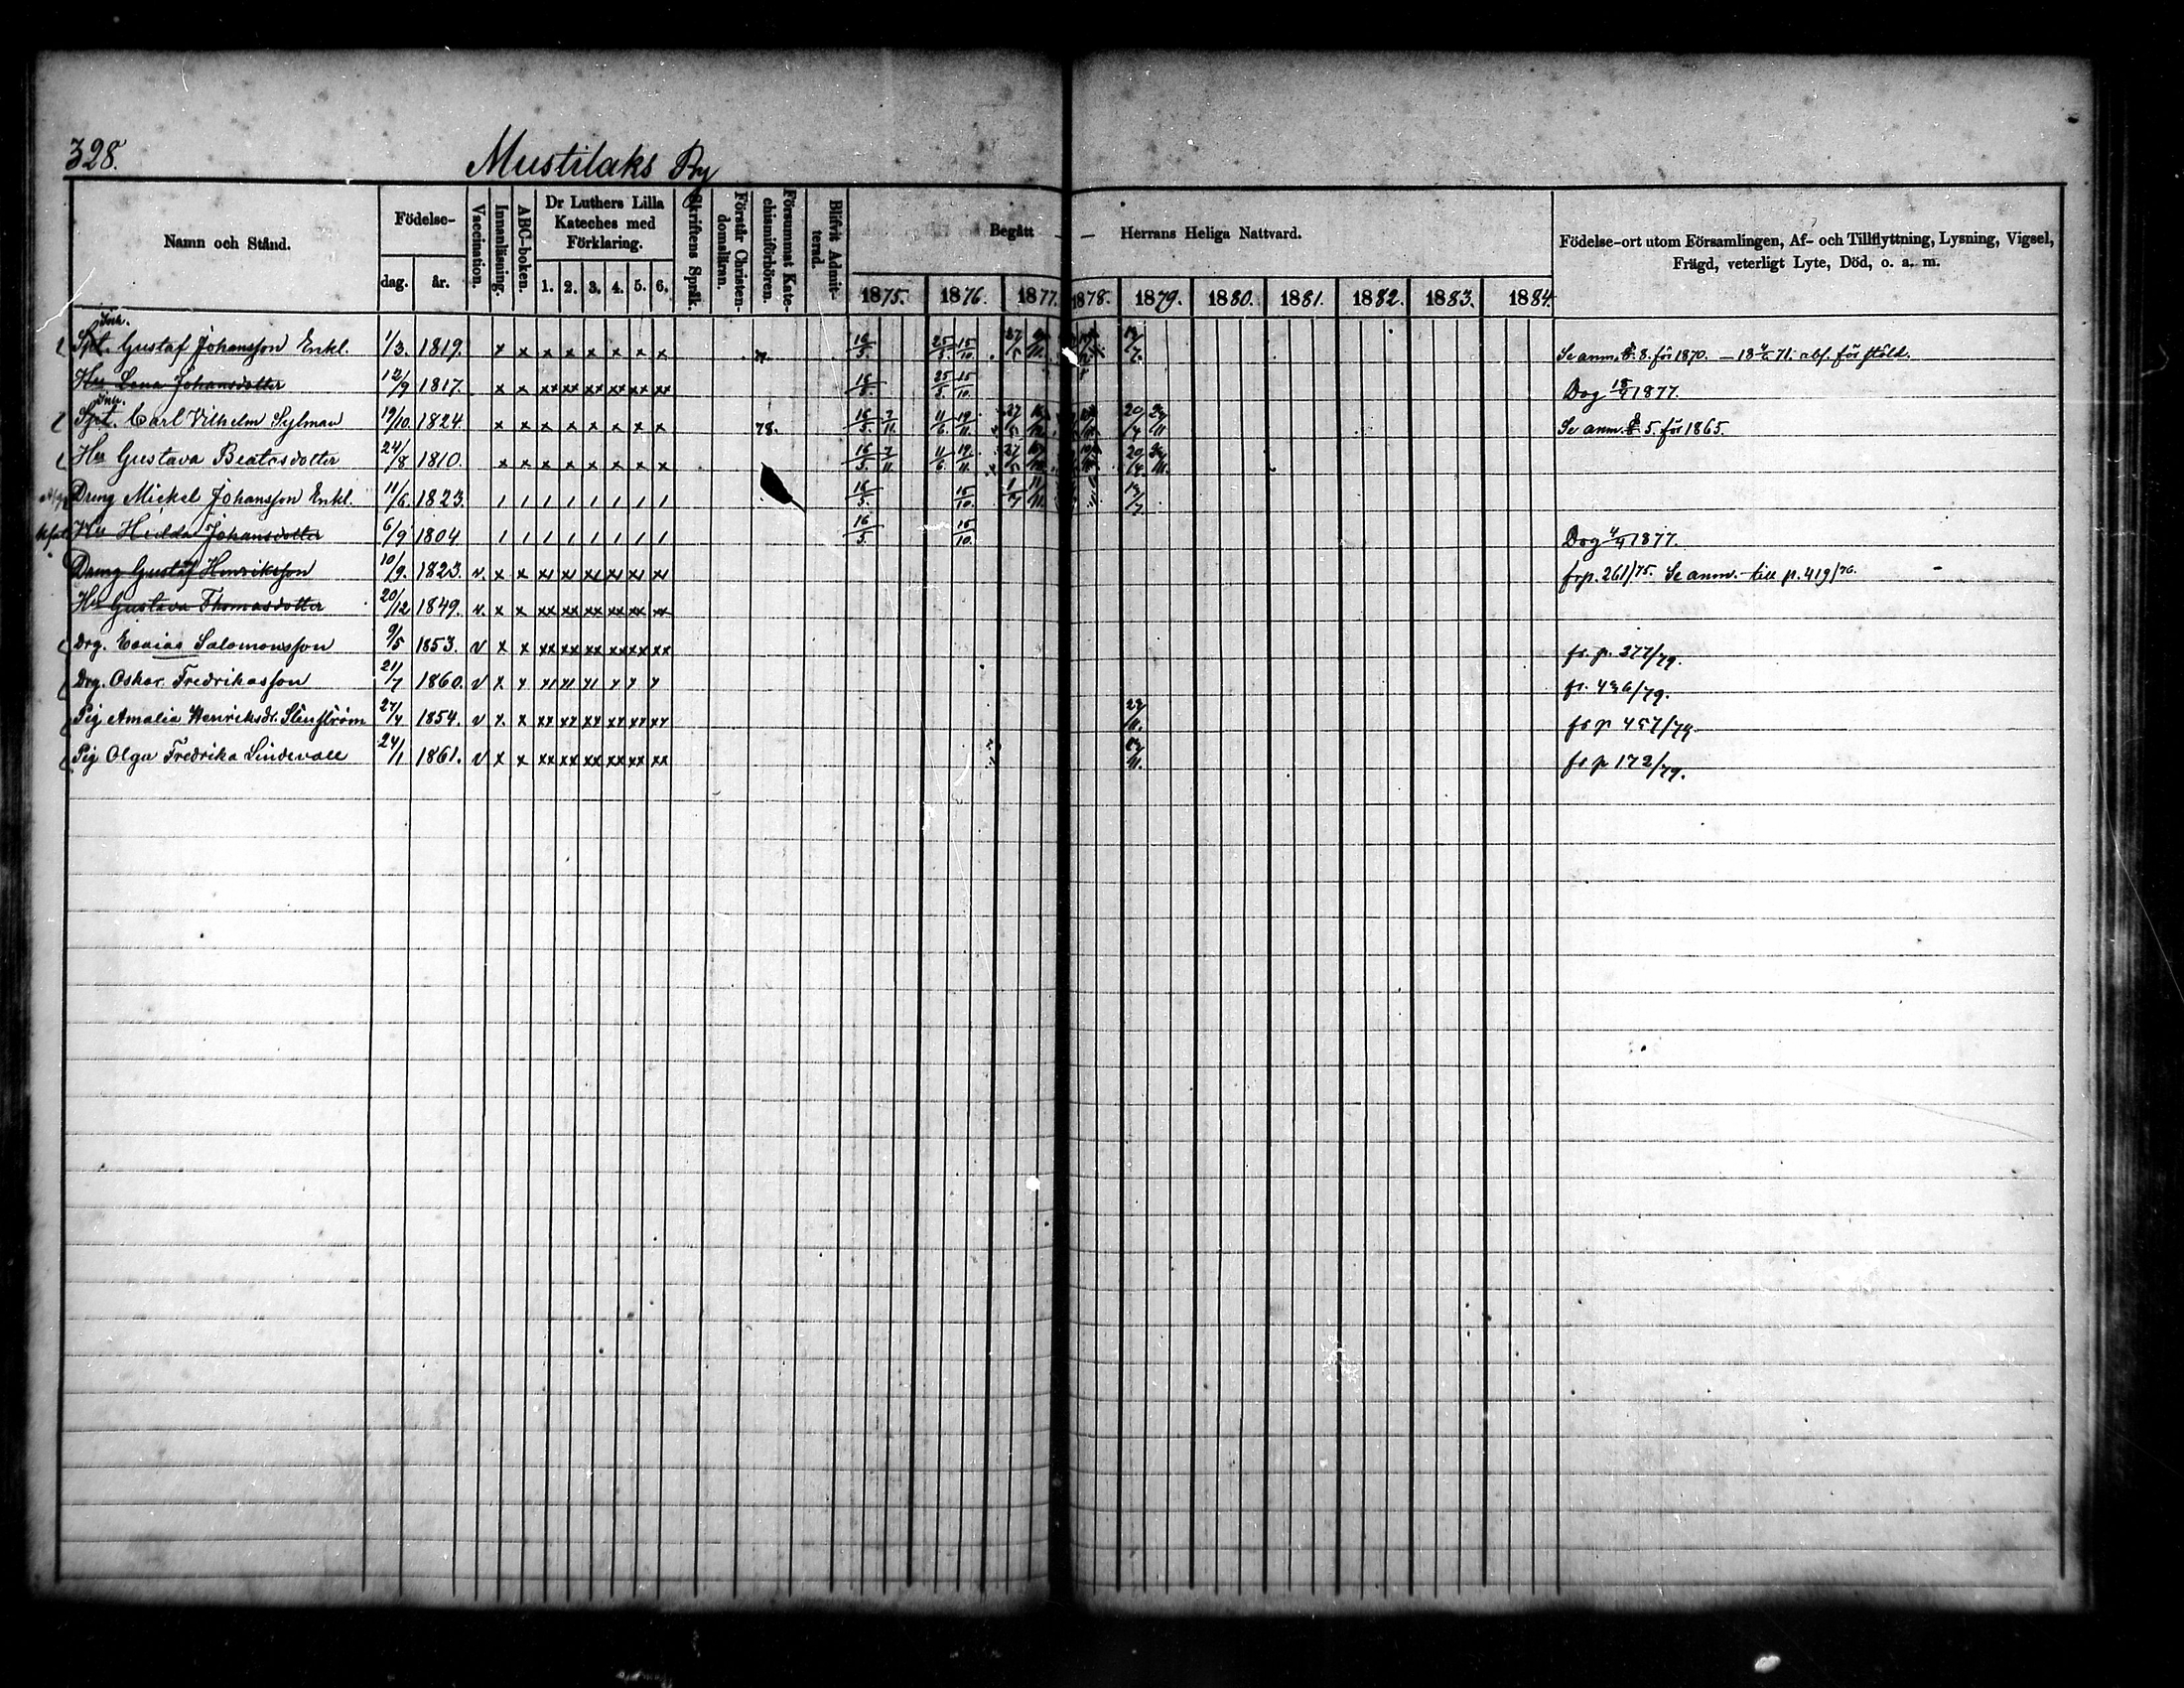 328.
Mustilaks By
Namn och Stånd.
Födelse-
dag. år.
Vaccination.
Innanläsning.
ABC-boken.
Dr Luthers Lilla
Kateches med
Förklaring.
1. 2. 3. 4. 5. 6.
Skriftens Språk.
Förstår Christen-
domsläran.
Försummat Kate-
chismiförhören.
Blifvit Admit-
terad.
Begått — Herrans Heliga Nattvard.
1875. 1876. 1877. 1878. 1879. 1880. 1881. 1882. 1883. 1884.
Födelse-ort utom Församlingen, Af- och Tillflyttning, Lysning, Vigsel,
Frägd, veterligt Lyte, Död, o. a. m.
Inh.
Spt. Gustaf Johansson Enkl. 1/3. 1819. x x x x x x x x 16/5. 25/5. 15/10. Se anm. 8. för 1870. — 18 71. abs. för stöld.
Hu Lena Johansdotter 12/9 1817. x x xx xx xx xx xx xx 16/5. 25/5. 15/10. Dog 1877.
Inh.
Spt. Carl Vilhelm Sylman 19/10. 1824. x x x x x x x x 78. 16/5. 7/11. 11/6. 19/11. 27/5 20/4 Se anm. 5. för 1865.
Hu Gustava Beatasdotter 24/8 1810. x x x x x x x x 16/5. 7/11. 11/6. 19/11. 27/5 20/4
Dreng Mickel Johansson Enkl. 11/6. 1823. 16/5. 15/10.
Hu Hedda Johansdotter 6/9 1804 16/5. 15/10. Dog 1877.
Dreng Gustaf Henriksson 10/9. 1823. v. x x frp. 261/75. Se anm. till p. 419/76.
Hu Gustava Thomasdotter 20/12 1849. v. x x xx xx xx xx xx xx
Drg. Esaias Salomonsson 9/5 1853. v x x xx xx xx xx xx xx fr. p. 277/79.
Drg. Oskar Fredriksson 21/7 1860. v x x fr. 436/79.
Pig Amalia Henriksdr. Stenström 27/4 1854. v x x xx xx xx xx xx xx fr p 457/79
Pig Olga Fredrika Lindevall 24/1 1861. v x x xx xx xx xx xx xx fr p 172/79.